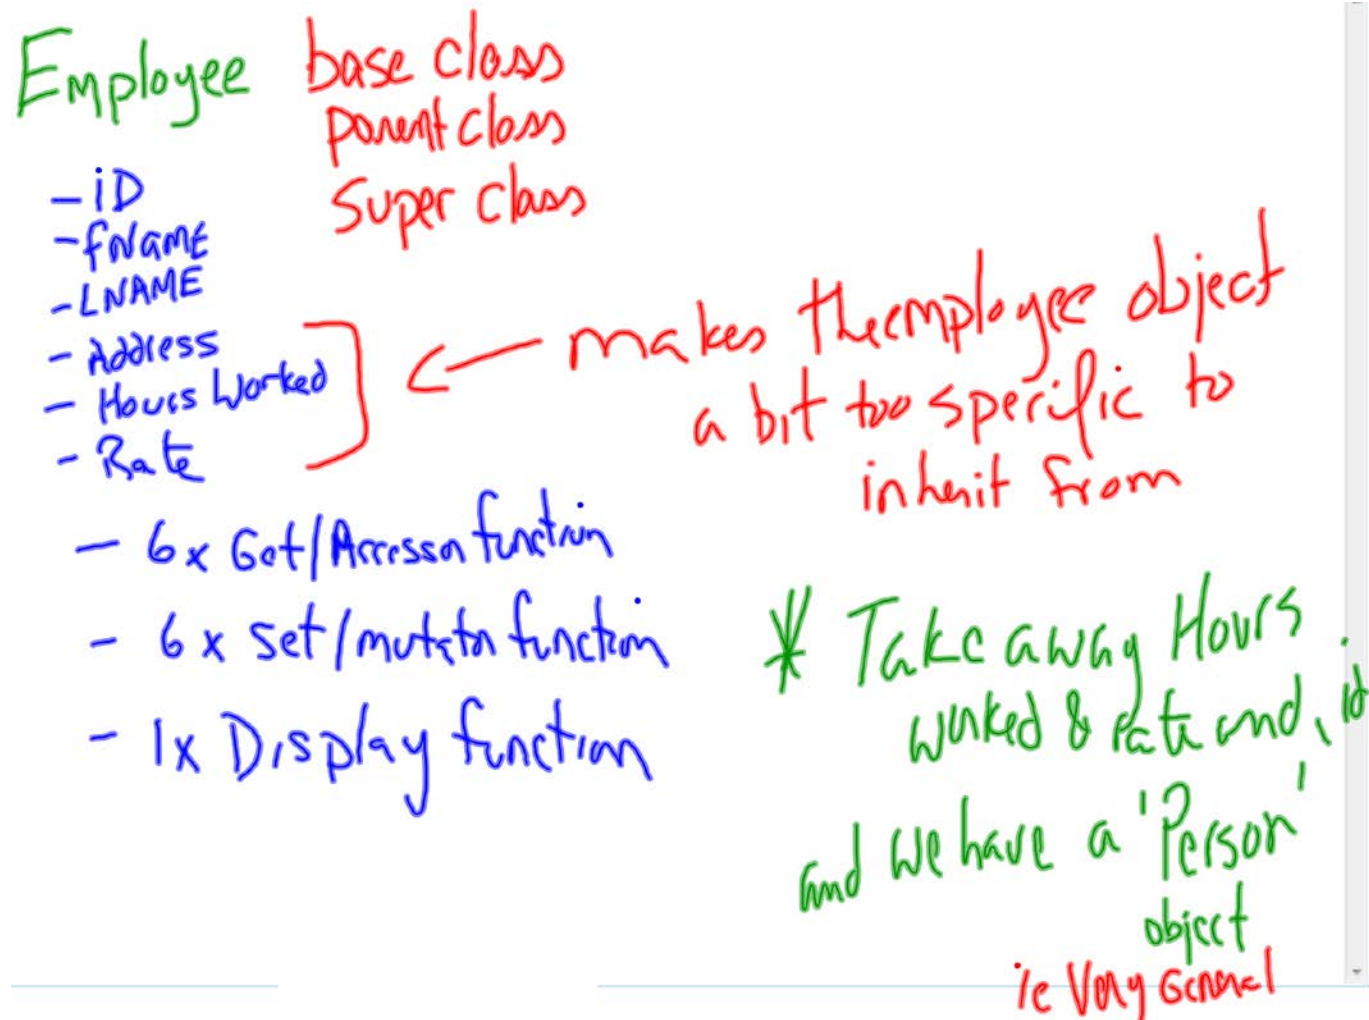 Employee
base class
parent class
Super class
- iD
- fName
- LNAME
- Address
- Hours Worked
- Rate
makes the employee object
a bit too specific to
inherit from
- 6x Get/Accessor function
- 6x set/mutator function
- 1x Display function
* Take away Hours
worked & rate and, id
and we have a 'Person'
object
ie Very General